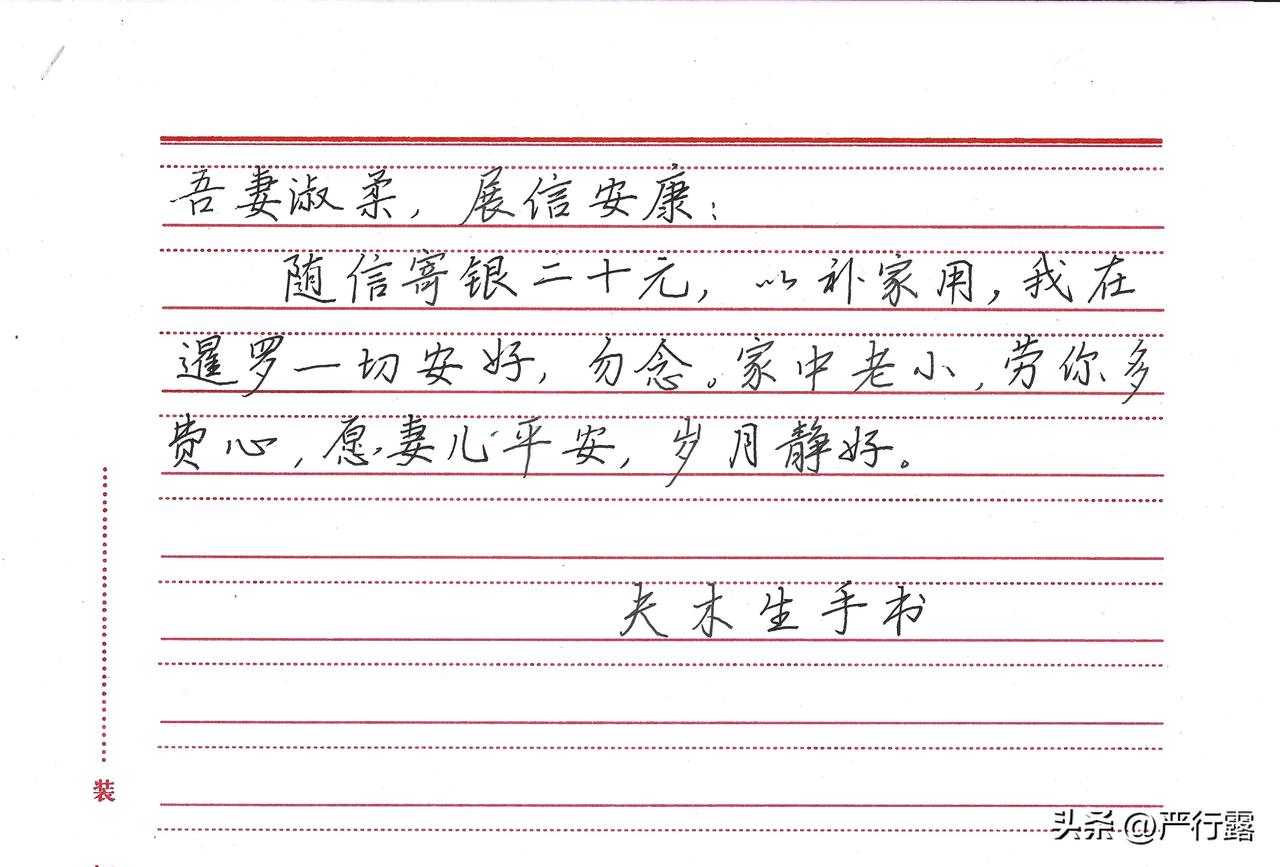 吾妻淑柔，展信安康：
随信寄银二十元，以补家用，我在
暹罗一切安好，勿念。家中老小，劳你多
费心，愿妻儿平安，岁月静好。
夫木生手书
装
头条 @严行露